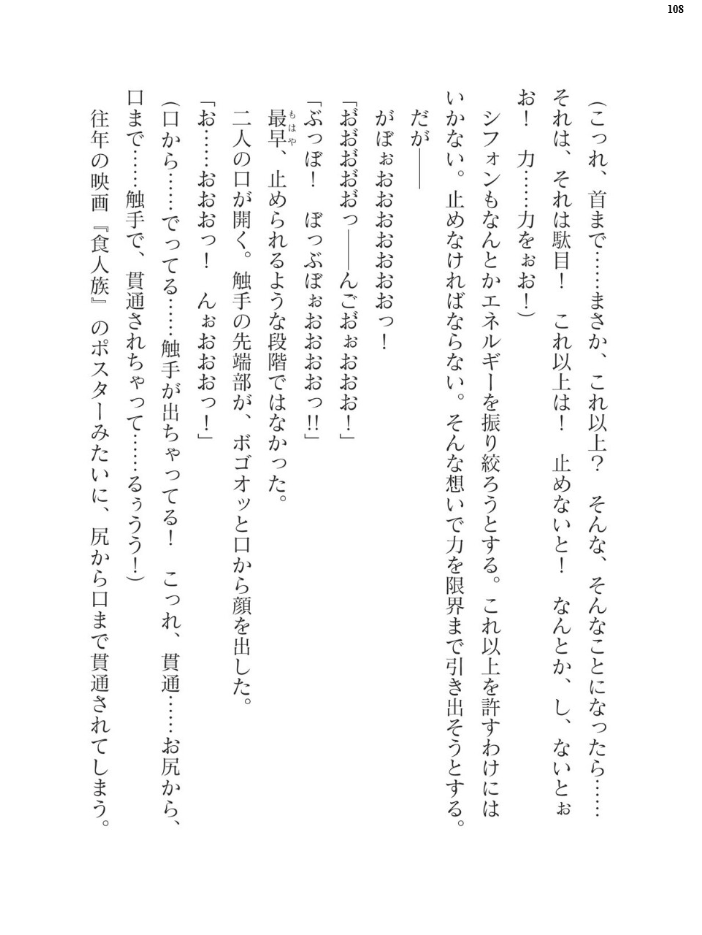 108
（こっれ、首まで……まさか、これ以上？　そんな、そんなことになったら……
それは、それは駄目！　これ以上は！　止めないと！　なんとか、し、ないとぉ
お！　力……力をぉお！）
シフォンもなんとかエネルギーを振り絞ろうとする。これ以上を許すわけには
いかない。止めなければならない。そんな想いで力を限界まで引き出そうとする。
だが――
がぼぉおおおおおおおっ！
「お゛お゛お゛お゛お゛っ――んごお゛ぉおおお！」
「ぶっぼ！　ぼっぶぼぉおおおおっ!!」
最早、止められるような段階ではなかった。
二人の口が開く。触手の先端部が、ボゴオッと口から顔を出した。
「お……おおおっ！　んぉおおおっ！」
（口から……でってる……触手が出ちゃってる！　こっれ、貫通……お尻から、
口まで……触手で、貫通されちゃって……るぅうう！）
往年の映画『食人族』のポスターみたいに、尻から口まで貫通されてしまう。